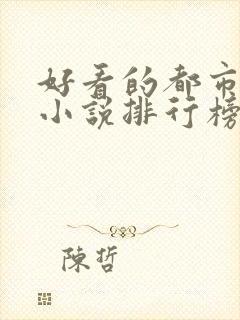 好看的都市
小说排行榜
陳哲